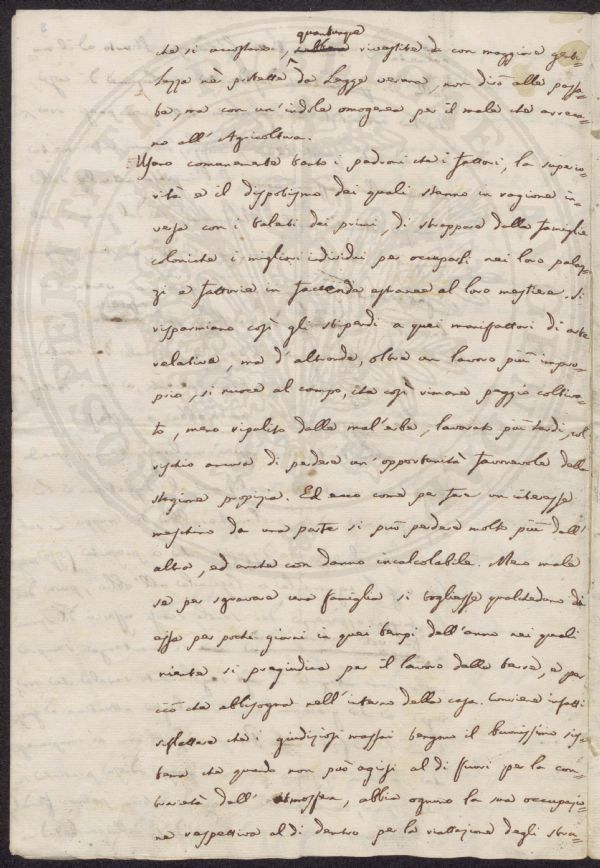 quantunque
che si accostano, sebbene rivestite da con maggiore genti=
lezza nè protette da Legge veruna, non dirò alla passa=
ta, ma con un'indole omogenea per il male che arreca=
no all'Agricoltura.
Usano comunemente tanto i padroni che i fattori, la superio=
rità e il dispotismo dei quali stanno in ragione in=
versa con i talenti dei primi, di strappare dalle famiglie
coloniche i migliori individui per occuparli nei loro palaz=
zi e fattorie in faccende estranee al loro mestiere. Si
risparmiano così gli stipendi a quei manifattori di arte
relativa, ma d'altronde, oltre un lavoro più impro=
prio, si nuoce al campo, che così rimane peggio coltiva=
to, meno ripulito dalle mal'erbe, lavorato più tardi, col
rischio ancora di perdere un'opportunità favorevole della
stagione propizia. Ed ecco come per fare un interesse
meschino da una parte si può perdere molto più dall'
altra, ed anche con danno incalcolabile. Meno male
se per sgravare una famiglia si togliesse qualcheduno di
essa per pochi giorni in quei tempi dell'anno nei quali
niente si pregiudica per il lavoro della terra, e per
ciò che abbisogna nell'interno della casa. Conviene infatti
riflettere che i giudiziosi massai tengono il buonissimo sis=
tema che quando non può agirsi al di fuori per la con=
trarietà dell'atmosfera, abbia ognuno la sua occupazio=
ne respettiva al di dentro per la riattazione degli stru=